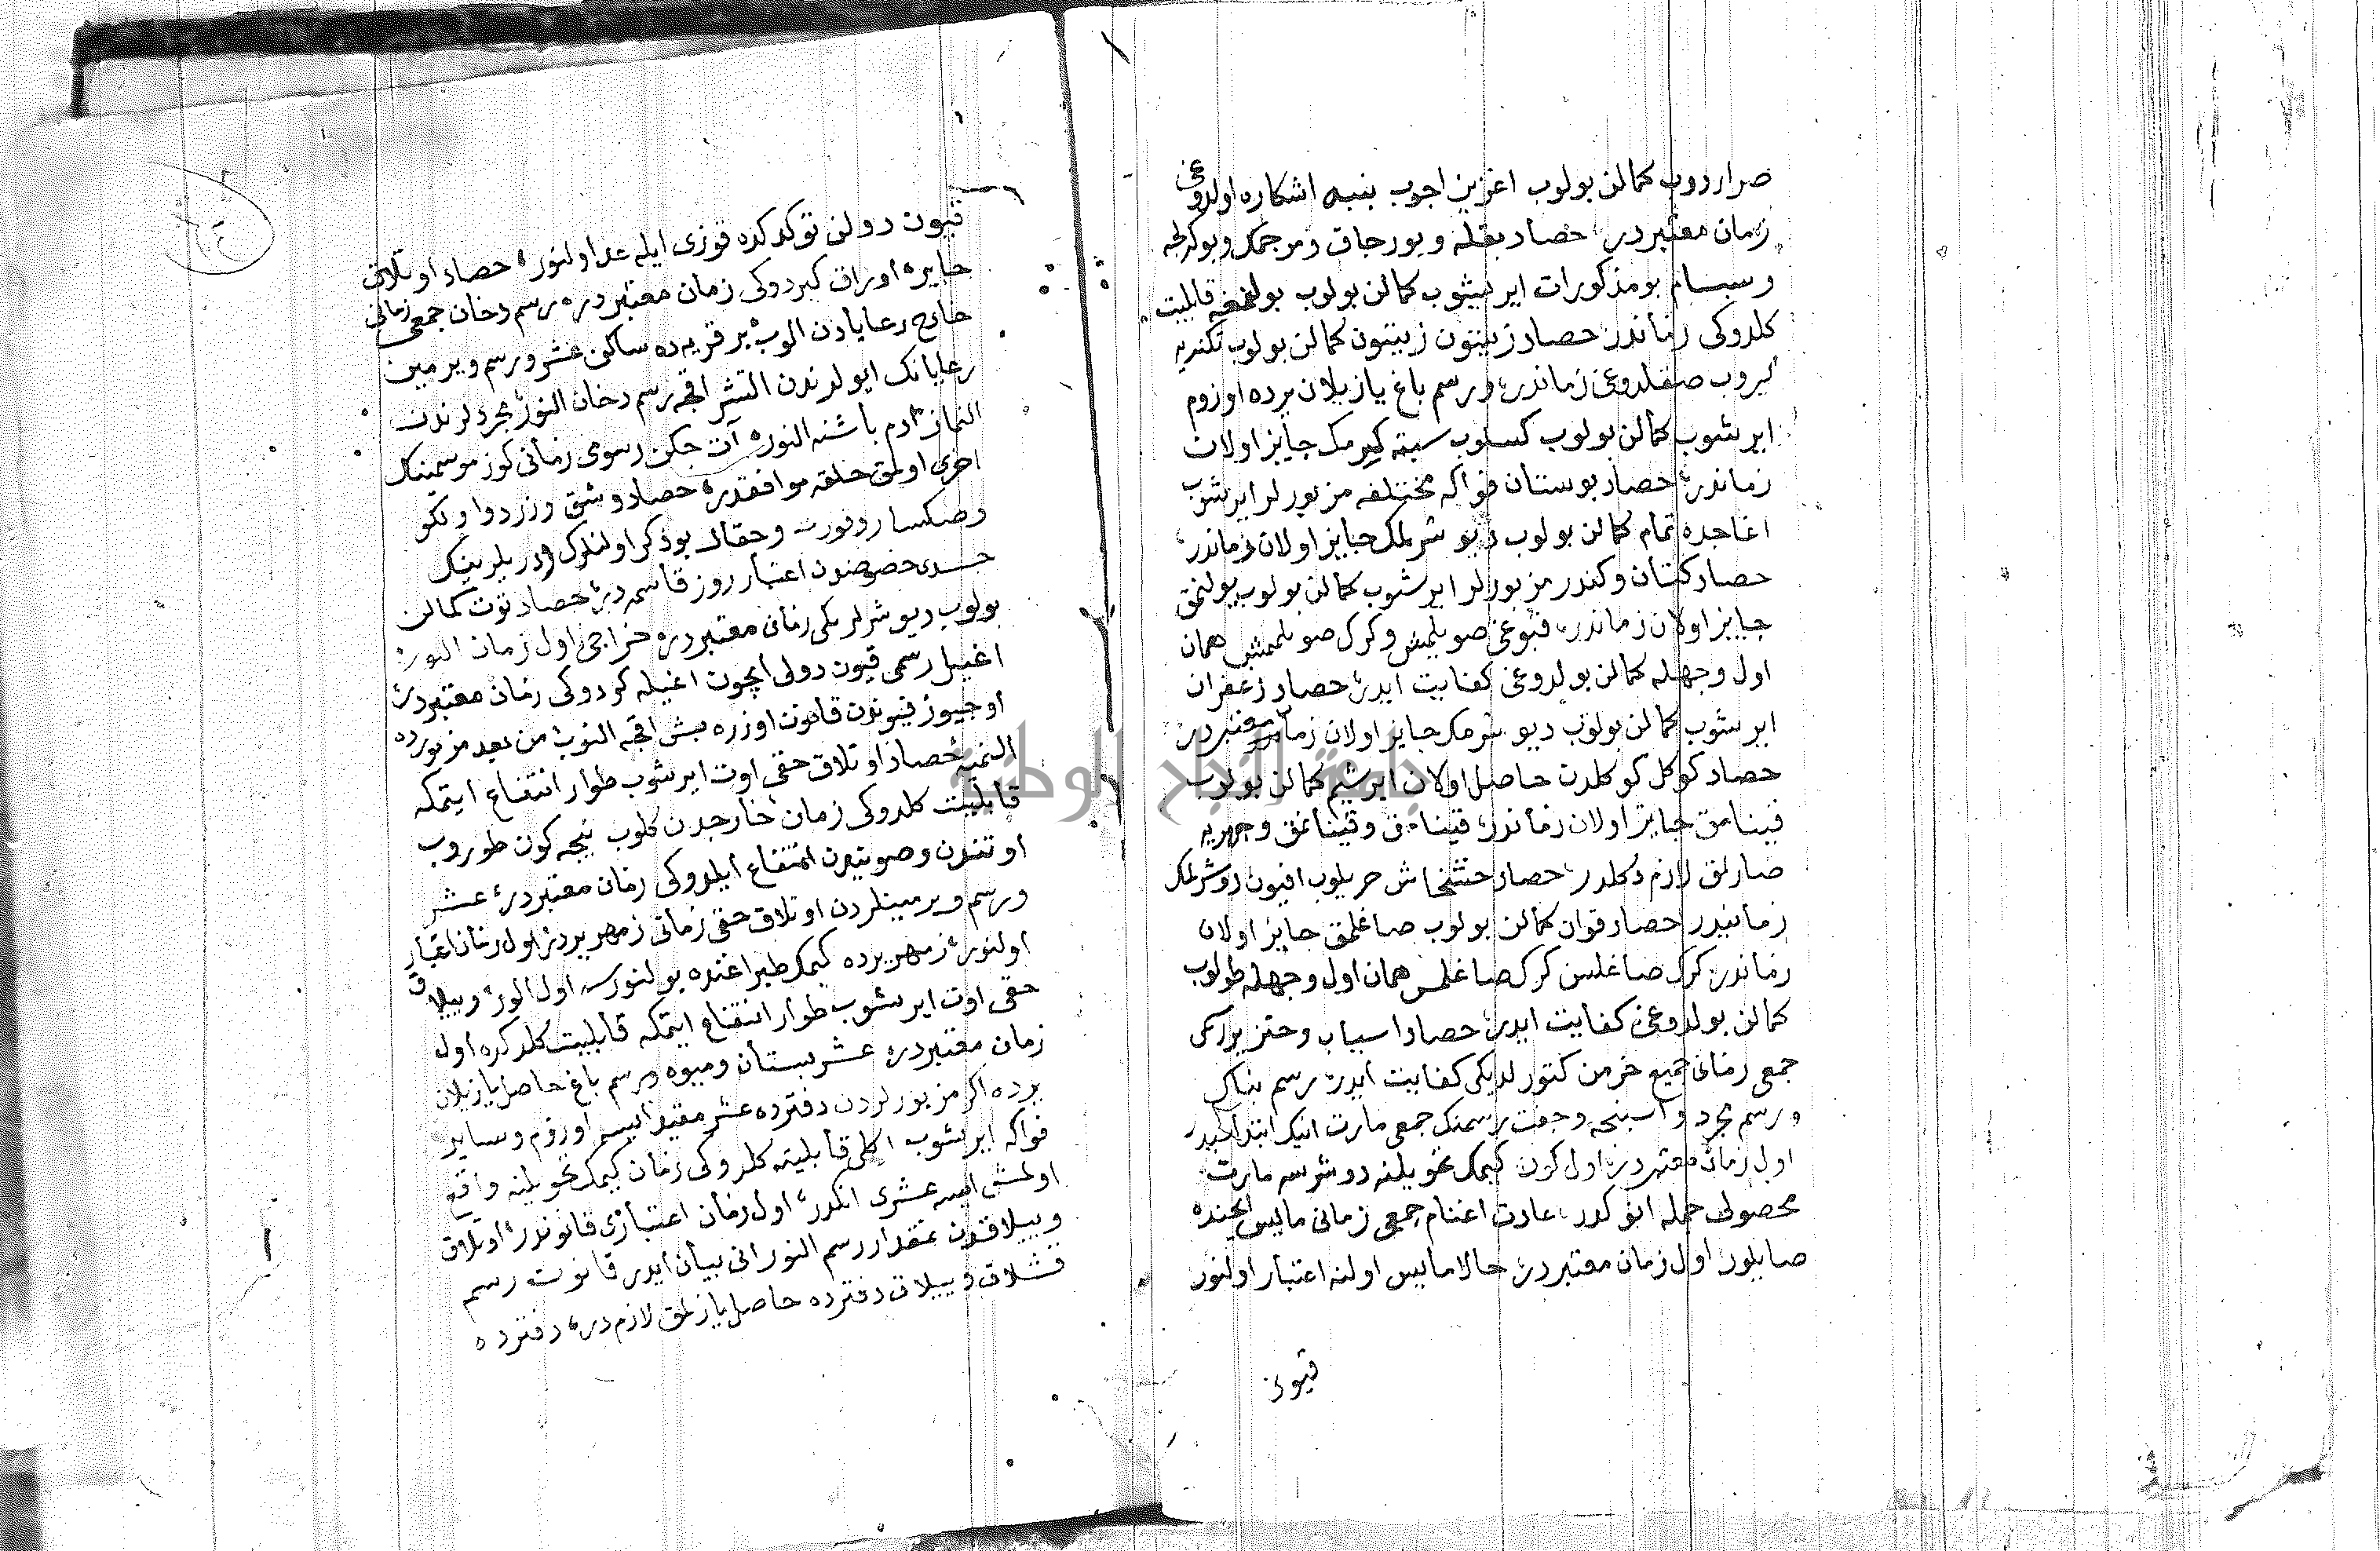 صراروب كمالن بولوب اغزين اجوب بنبه اشكاره اولدوغی
زمان معتبردر حصاد بقله وبورجاق ومرجمك وبوكرلجه
وسسام بو مذكورات ايريشوب كمالن بولوب بولنمغه قابليت
كلدوكی زماندر حصاد زيتون زيتون كمالن بولوب
صقلدوغی زماندر ورسم باغ يازيلان يرده اوزوم
ايريشوب كمالن بولوب كسلوب سپته كيرمك جايز اولان
زماندر حصاد بوستان فواكه مختلفه مزبورلر ايريشوب
اغاجده تمام كمالن بولوب ديوشرلمك جايز اولان زماندر
حصاد كتان وكندر مزبورلر ايريشوب كمالن بولوب يولنمق
جايز اولان زماندر قبوغی صويلمش وكرك صويلممش همان
اول وجهله كمالن بولدوغی كفايت ايدر حصاد زعفران
ايريشوب كمالن بولوب ديوشرمك جايز اولان زمان معتبردر
حصاد كوكل كوكلدن حاصل اولان ابريشم كمالن بولوب
قينامق جايز اولان زماندر قينامق وقينانمق وجهريه
صارلمق لازم دكلدر حصاد خشخاش جزيلوب افيون دوشرلمك
زمانيدر حصاد قوان كمالن بولوب صاغلمق جايز اولان
زماندر كرك صاغلسن كرك صاغلمسن همان اول وجهله طولوب
كمالن بولدوغی كفايت ايدر حصاد اسياب وخنزيرك
جمعی زمانی جميع خرمن كتورلديكی كفايت ايدر رسم بناك
ورسم مجرد واسپنجه وجفت رسمنك جمعی مارت اينك ابتداسيدر
اول زمان معتبردر اول كون كيمك تحويلنه دوشرسه مارت
محصولی جمله انوكدر عادت اغنام جمعی زمانی مايس ايچنده
صايلور اول زمان معتبردر حالا مايس اولنه اعتبار اولنور
قيون
قيون دولن توكدكده قوزی ايله عد اولنور حصاد اوتلاق
جاير اوراق كيردوكی زمان معتبردر رسم دخان جمعی زمانی
خارج رعايادن الوب بر قريه ده ساكن عشر ورسم ويرمين
رعايانك ايولرندن التشر اقچه رسم دخان النور مجردلرندن
النماز ادم باشنه النور آت جكن رسومی زمانی كوز موسمينك
اخری اولمق خلقه موافقدر حصاد وشق وزردوا وتلكو
وصكسار وحقال بو ذكر اولنلرك دريلرينك
حسدی حضوصندن اعتبار روز قاسمه در حصاد توت كمالن
بولوب ديوشرلريكی زمانی معتبردر خراجی اول زمان النور
اغيل رسمی قيون دولی ايچون اغيله كردوكی زمان معتبردر
اوچيوز قيوندن قانون اوزره بش اقچه النوب من بعد مزبورده
النميه حصاد اوتلاق حقی اوت ايريشوب طوار انتفاع ايتمكه
قابليت كلدوكی زمان خارجدن كلوب نيجه كون طوروب
اوتندن وصويندن انتفاع ايلدوكی زمان معتبردر عشر
ورسم ويرمينلردن اوتلاق حقی زمانی زمهريردر اول زمان اعتبار
اولنور زمهريرده كيمك طپراغنده بولنورسه اول الور وييلاق
حقی اوت ايريشوب طوار انتفاع ايتمكه قابليت كلدكده اول
زمان معتبردر عشر بستان وميوه ورسم باغ حاصل يازيلان
يرده اكر مزبورلردن دفترده عشر مقيد ايسه اوزوم وساير
فواكه ايريشوب اكلی قابليته كلدوكی زمان كيمك تحويلنه واقع
اولمش ايسه عشری انكدر اول زمان اعتباری قانوندر اوتلاق
وييلاقدن نمقدار رسم النور انی بيان ايدر قانون رسم
قشلاق وييلاق دفترده حاصل يازلمق لازم در دفترده
جامعة النجاح الوطنية